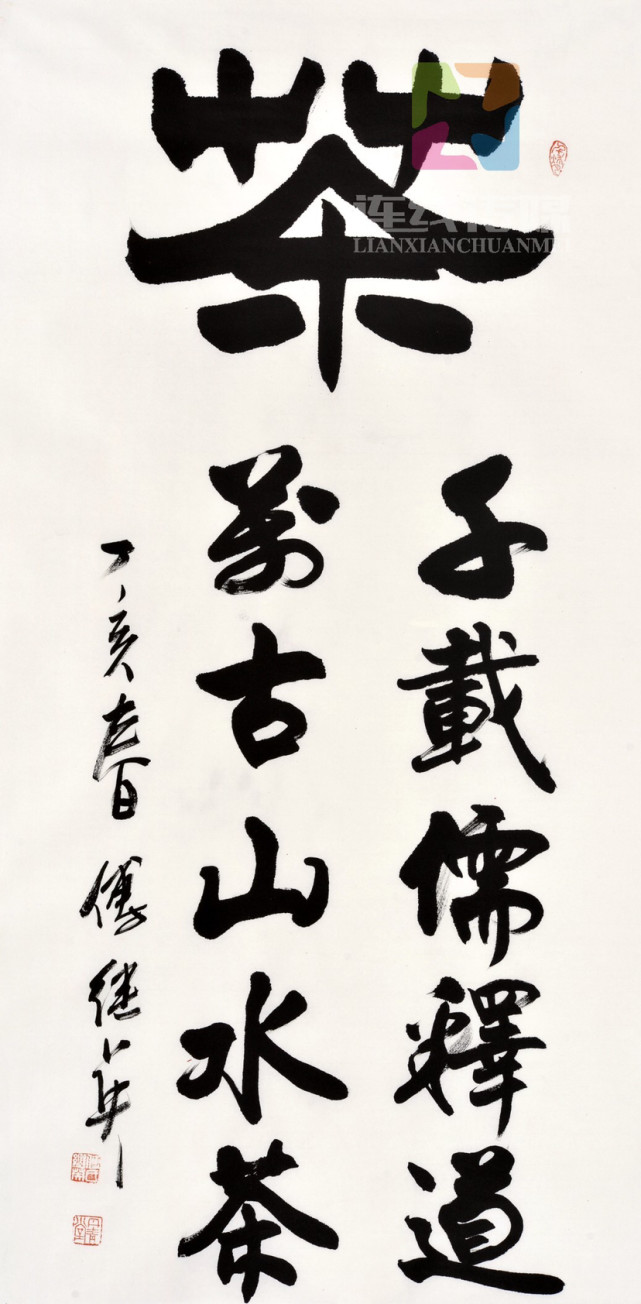 茶
千載儒釋道
萬古山水茶
丁亥春 傅继
连线传媒
LIANXIANCHUANMEI